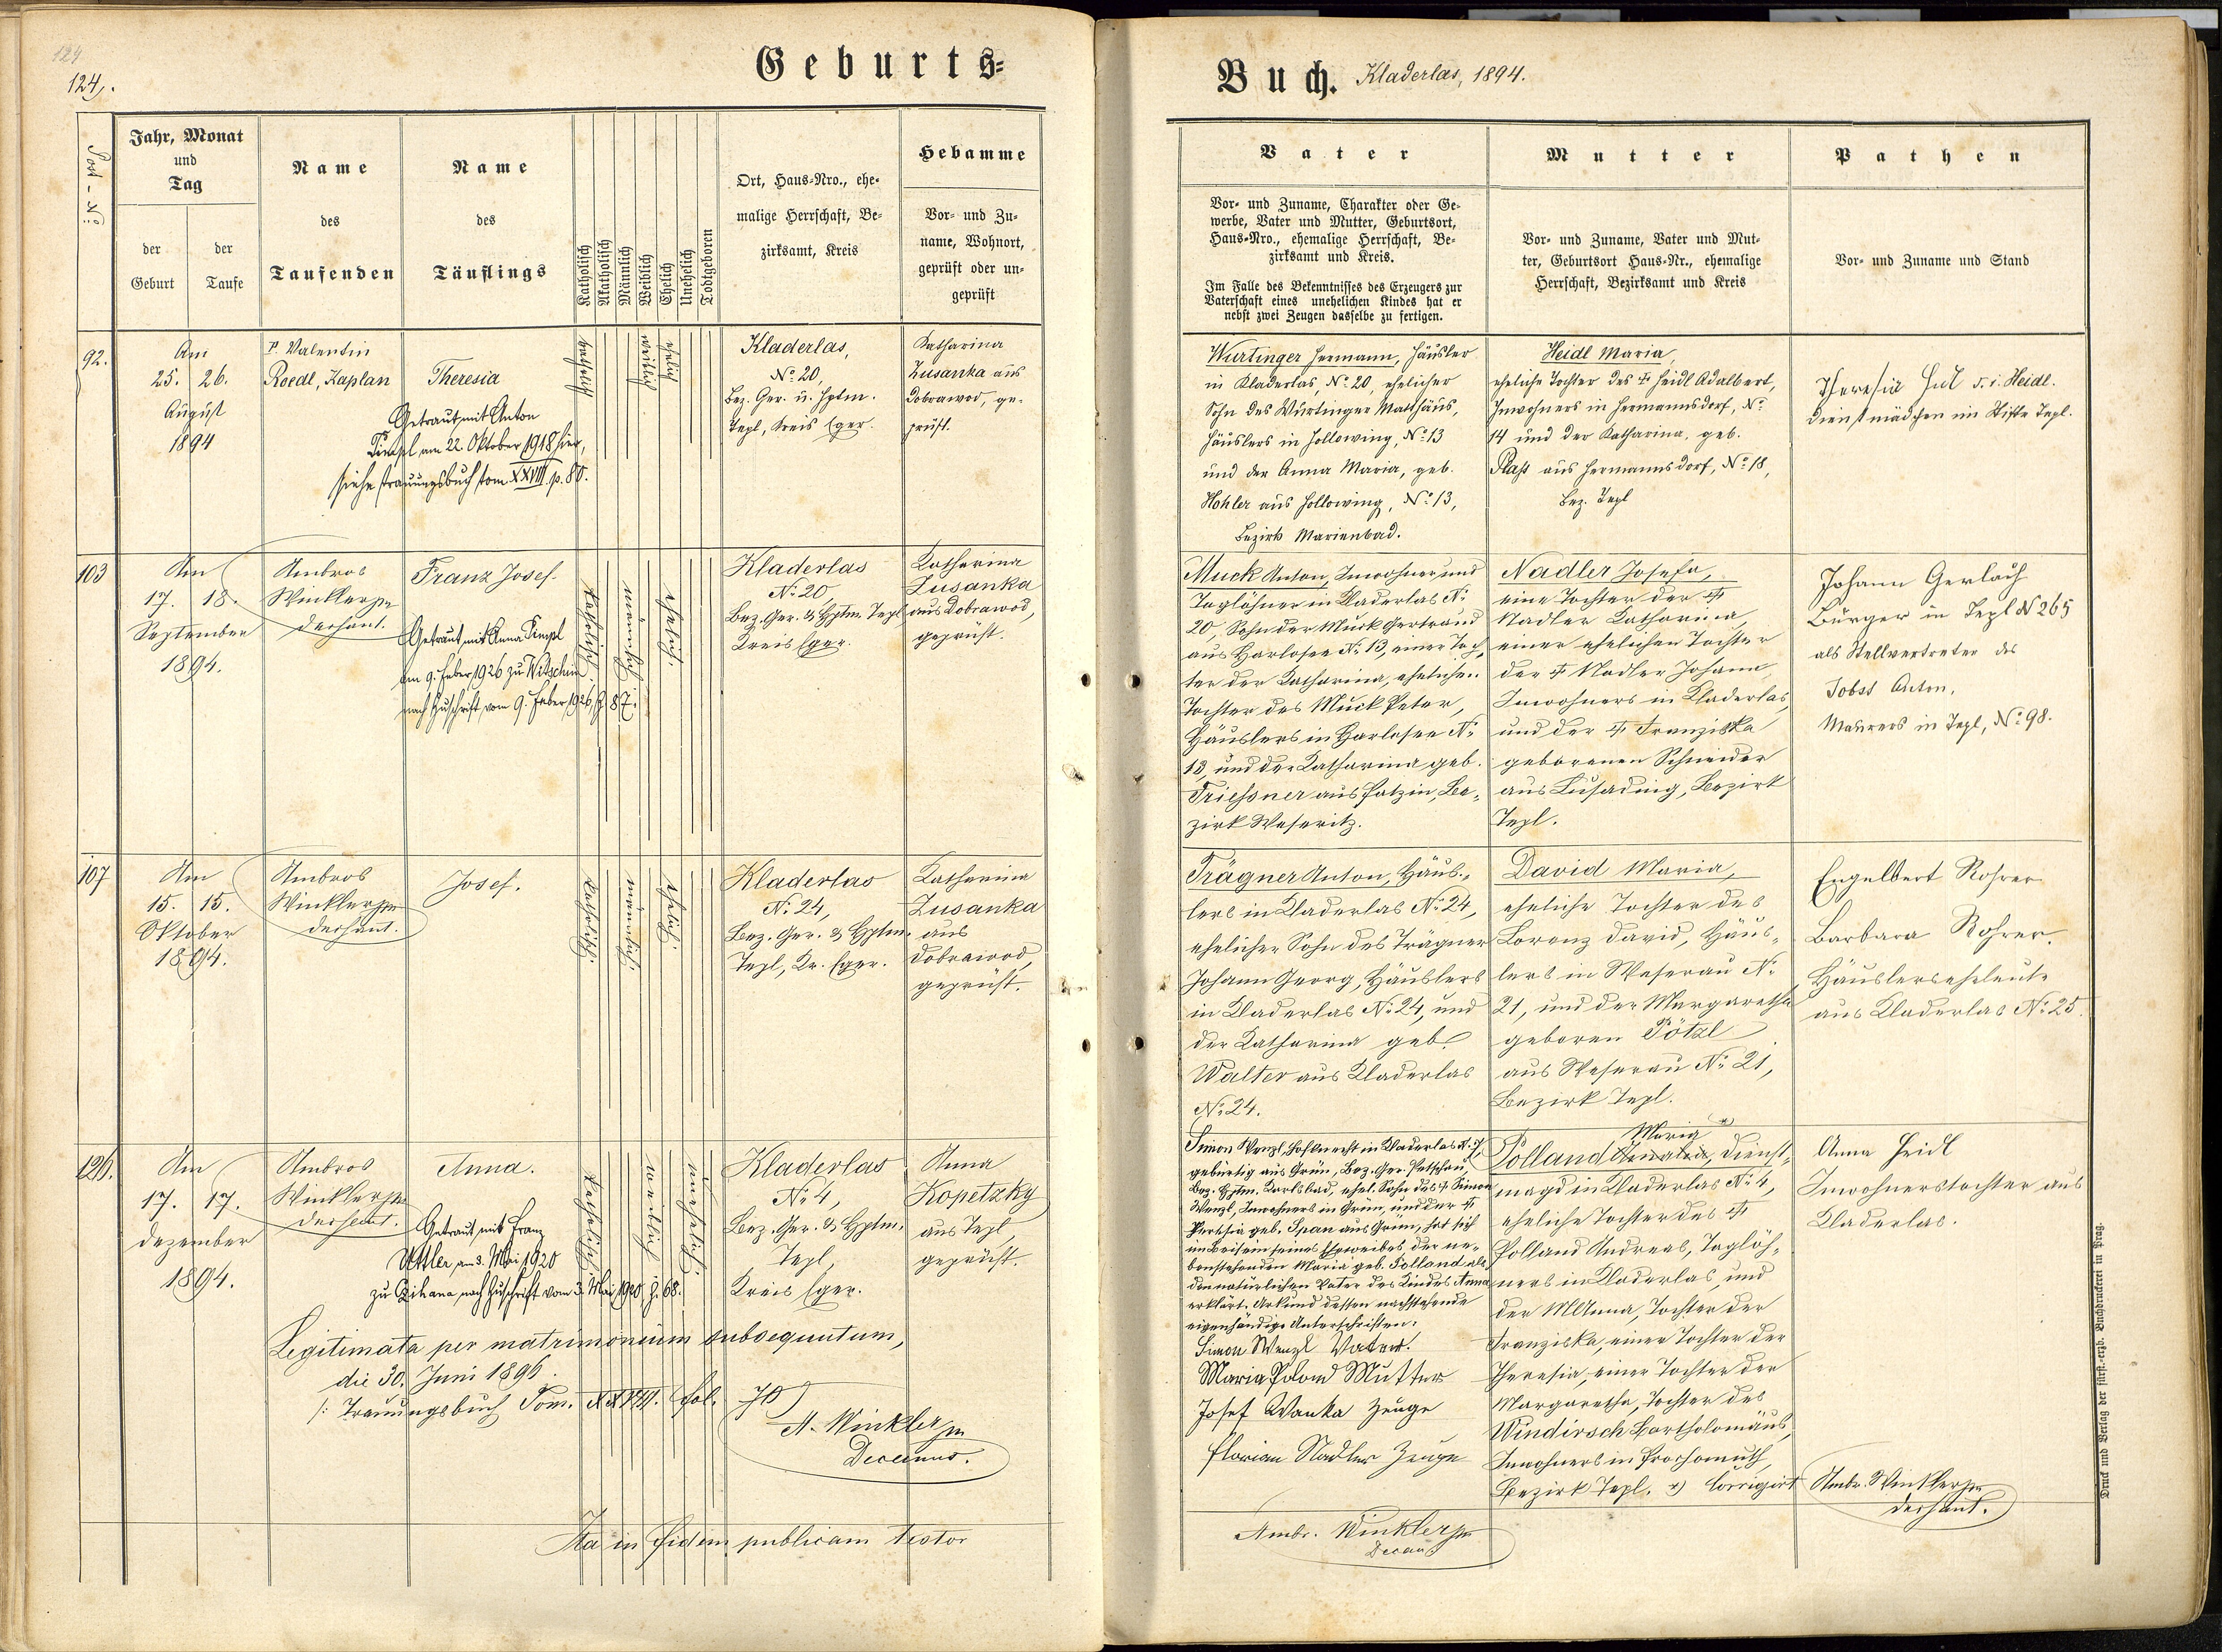 124
124.
Geburts=
Post-No
Jahr, Monat
und
Tag
der
Geburt
der
Taufe
Name
des
Taufenden
Name
des
Täuflings
Katholisch
Akatholisch
Männlich
Weiblich
Ehelich
Unehelich
Todtgeboren
Ort, Haus-Nro., ehe-
malige Herrschaft, Be-
zirksamt, Kreis
Hebamme
Vor- und Zu-
name, Wohnort,
geprüft oder un-
geprüft
92.
Am
25. 26.
August
1894
P. Valentin
Roedl, Kaplan
Theresia
Getraut mit Anton
am 22. Oktober 1918 hier,
siehe Trauungsbuch tom XXVIII p. 80.
katholisch
weiblich
ehelich
Kladerlas,
No 20,
Bez. Ger. u. Hptm.
Tepl, Kreis Eger.
Katharina
Zusanka aus
Dobrawod, ge-
prüft.
103
Am
17. 18.
September
1894.
Ambros
Winkler
Dechant.
Franz Josef.
Getraut mit Anna Timpl
am 9. Feber 1926 zu Witschin
nach Zuschrift vom 9. Feber 1926, Z. 87.
katholisch.
männlich
ehelich.
Kladerlas
No 20,
Bez. Ger. & Hptm. Tepl
Kreis Eger.
Katharina
Zusanka
aus Dobrawod,
geprüft.
107
Am
15. 15.
Oktober
1894.
Ambros
Winkler
Dechant.
Josef.
Katholisch.
männlich.
ehelich.
Kladerlas
No 24,
Bez. Ger. & Hptm.
Tepl, Kr. Eger.
Katharina
Zusanka
aus
Dobrawod,
geprüft.
126.
Am
17. 17.
Dezember
1894.
Ambros
Winkler
Dechant.
Anna.
Getraut mit Franz
Uttler am 3. Mai 1920
zu Zihana nach Zuschrift vom 3. Mai 1920, Z. 68.
katholisch
weiblich
unehelich.
Kladerlas
No 4,
Bez. Ger. & Hptm.
Tepl,
Kreis Eger.
Anna
Kopetzky
aus Tepl,
geprüft.
Legitimata per matrimonium subsequutum,
die 30. Juni 1896.
/: Trauungsbuch Tom. fol. 70
A. Winkler
Decanus.
Ita in fidem publicam testor
Buch. Kladerlas, 1894.
Vater
Vor- und Zuname, Charakter oder Ge-
werbe, Vater und Mutter, Geburtsort,
Haus-Nro., ehemalige Herrschaft, Be-
zirksamt und Kreis.
Im Falle des Bekenntnisses des Erzeugers zur
Vaterschaft eines unehelichen Kindes hat er
nebst zwei Zeugen dasselbe zu fertigen.
Mutter
Vor- und Zuname, Vater und Mut-
ter, Geburtsort Haus-Nr., ehemalige
Herrschaft, Bezirksamt und Kreis
Pathen
Vor- und Zuname und Stand
Wurtinger Hermann, Häusler
in Kladerlas No 20, ehelicher
Sohn des Wurtinger Matthäus,
Häuslers in Hollowing, No 13
und der Anna Maria, geb.
Hohler aus Hollowing, No 13,
Bezirk Marienbad.
Heidl Maria,
eheliche Tochter des † Heidl Adalbert,
Inwohners in Hermannsdorf, No
14 und der Katharina, geb.
Plaß aus Hermannsdorf, No 18,
Bez. Tepl
Theresia Hul v. i. Heidl.
Dienstmädchen im Stifte Tepl.
Muck Anton, Inwohner und
Taglöhner in Kladerlas No
20, Sohn der Muck Gertraud
aus Harlosee No 13, einer Toch-
ter der Katharina, ehelichen
Tochter des Muck Peter,
Häuslers in Harlosee No
13, und der Katharina geb.
Trießner aus Hatzin, Be-
zirk Weseritz.
Nadler Josefa,
eine Tochter der †
Nadler Katharina,
einer ehelichen Tochter
des † Nadler Johann,
Inwohners in Kladerlas,
und der † Franziska
geborenen Schneider
aus Lusading, Bezirk
Tepl.
Johann Gerlach
Bürger in Tepl N 265
als Stellvertreter des
Jobst Anton,
Maurers in Tepl, No 98.
Trägner Anton, Häus-
lers in Kladerlas No 24,
ehelicher Sohn des Trägner
Johann Georg, Häuslers
in Kladerlas No 24, und
der Katharina geb.
Walter aus Kladerlas
No 24.
David Maria,
eheliche Tochter des
Lorenz David, Häus-
lers in Weserau No
21, und der Margaretha
geboren Pötzl
aus Weserau No 21,
Bezirk Tepl.
Engelbert Rohrer
Barbara Rohrer.
Häuslerseheleute
aus Kladerlas No 25.
Simon Wenzl, Hofknecht in Kladerlas N. 7,
gebürtig aus Grün, Bez. Ger. Petschau,
Bez. Hptm. Karlsbad, ehel. Sohn des † Simon
Wenzl, Inwohners in Grün, und der †
Theresia geb. Span aus Grün, hat sich
im Beisein seines Eheweibes, der ne-
benstehenden Maria geb. Polland als
den natürlichen Vater des Kindes Anna
erklärt. Urkund dessen nachstehende
eigenhändige Unterschriften:
Simon Wenzl Vater.
Maria Poland Mutter
Josef Wanka Zeuge
Florian Nadler Zeuge
Maria x)
Polland, Dienst-
magd in Kladerlas No 4,
eheliche Tochter des †
Polland Andreas, Taglöh-
ners in Kladerlas, und
der M Anna, Tochter der
Franziska, einer Tochter der
Theresia, einer Tochter der
Margaretha, Tochter des
Windirsch Bartholomäus,
Inwohners in Prochomuth,
Bezirk Tepl. x) Corrigirt
Anna Heidl
Inwohnerstochter aus
Kladerlas.
Ambr. Winkler
Dechant.
Ambr. Winkler
Decan
Druck und Verlag der fürst.-erzb. Buchdruckerei in Prag.